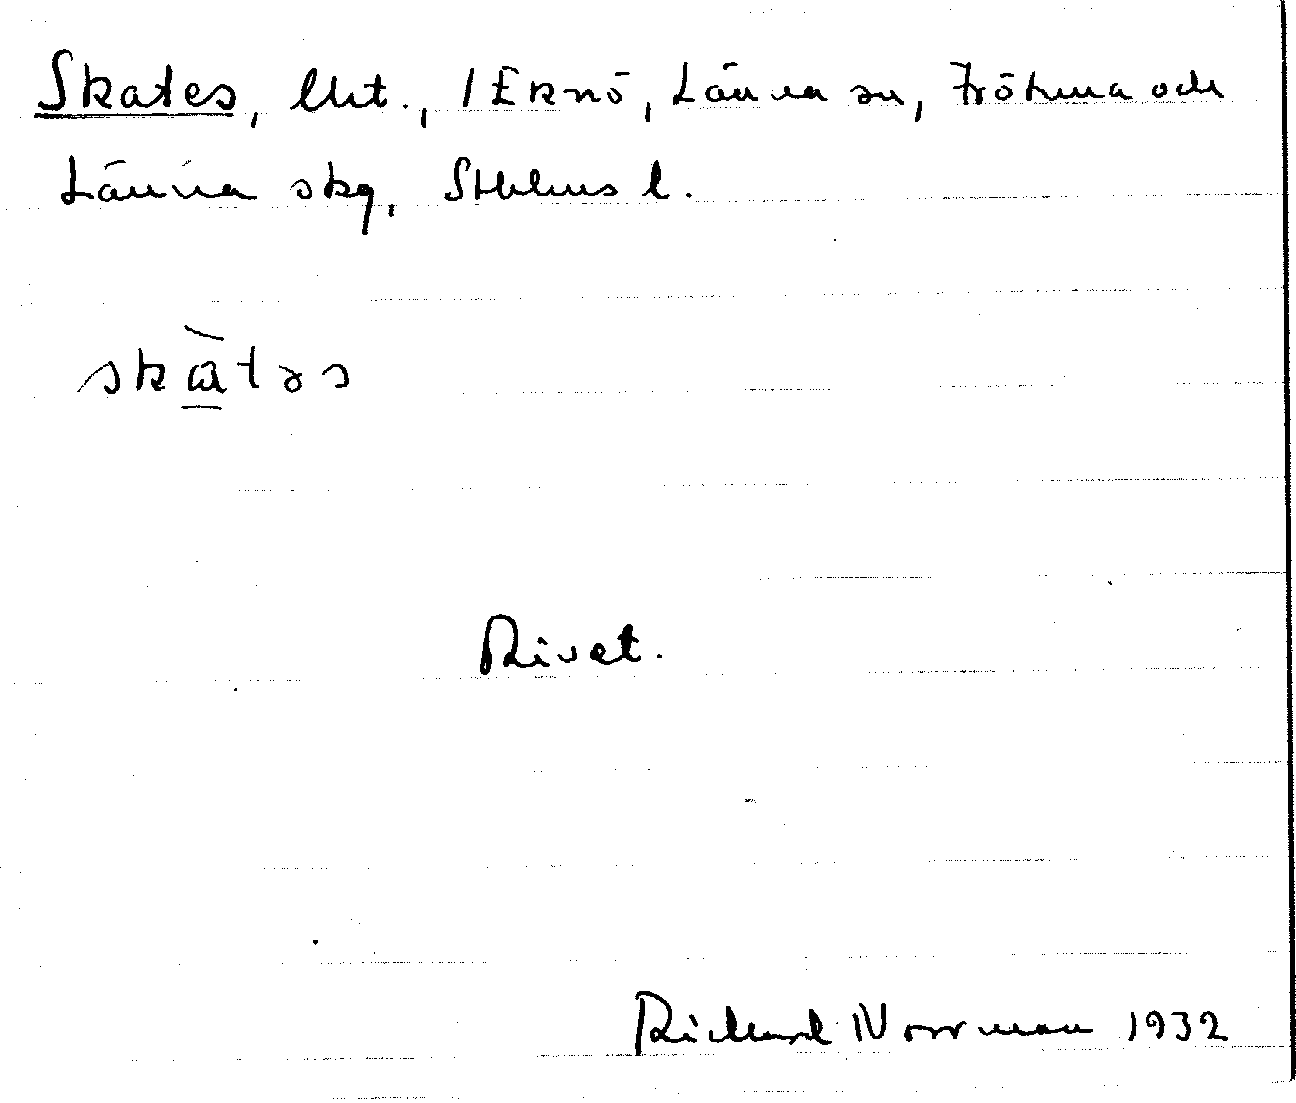 Skates, lht., 1 Eknö, Länna sn, Frötuna och
Länna skg, Sthlms l.
skà̱təs
Rivet.
Richard Norrman 1932